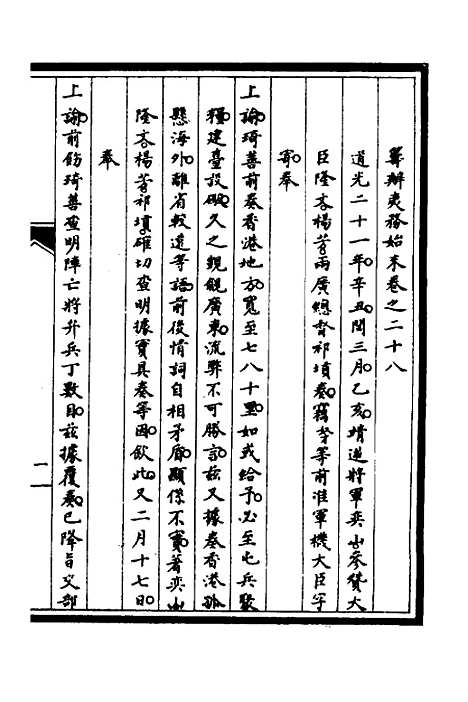 籌辦夷務始末卷之二十八
道光二十一年辛丑閏三月乙亥靖逆將軍奕山參贊大
臣隆文楊芳兩廣總督祁𡎴奏竊芳等前准軍機大臣字
寄奉
上諭琦善前奏香港地方寬至七八十里如或給予必至屯兵聚
糧建臺設礮久之覬覦廣東流弊不可勝言茲又據奏香港孤
懸海外離省較遠等語前後情詞自相矛盾顯係不實著奕山
隆文楊芳祁𡎴確切查明據實具奏等因欽此又二月十七日
奉
上諭前飭琦善查明陣亡將弁兵丁數目茲據覆奏已降旨交部
二
一